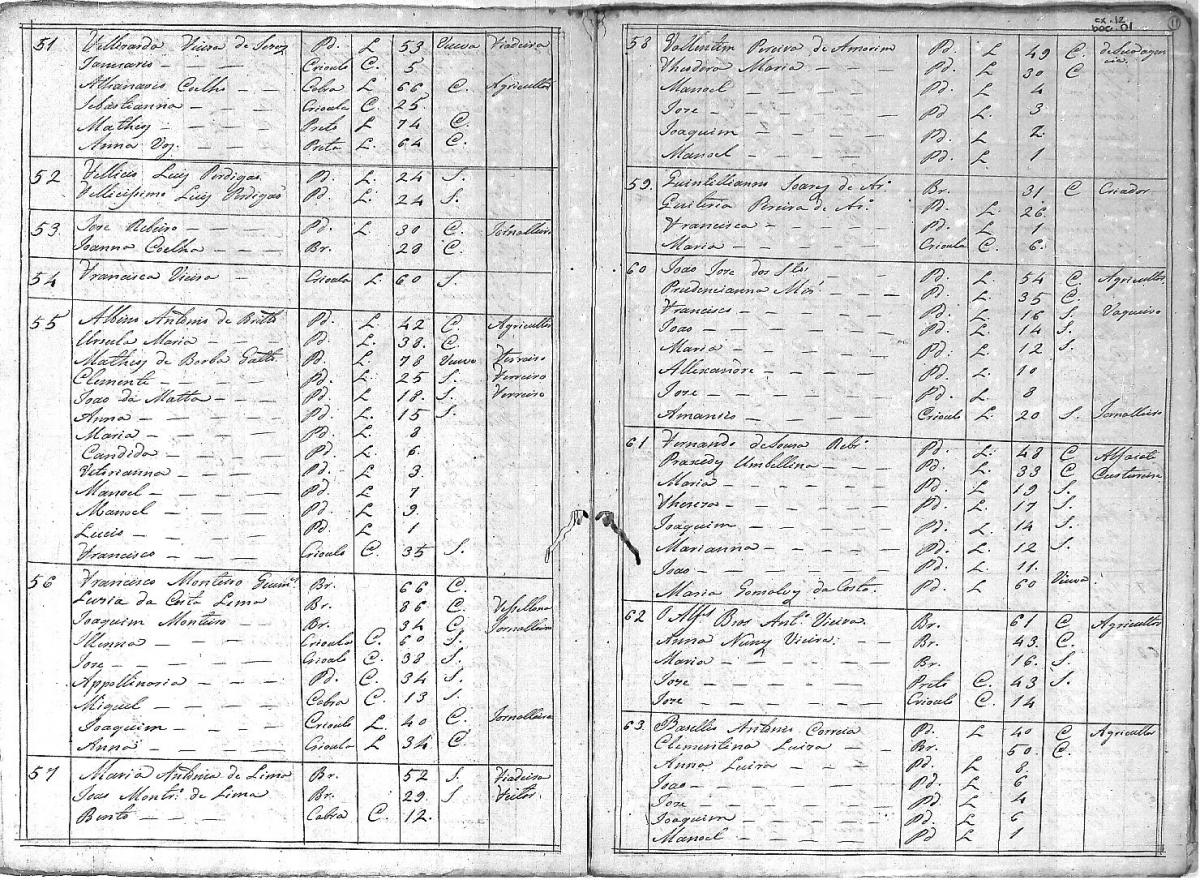 51 Vellerarda Vieira de Pd. L 53 Viuva Fiadeira
Januario — Crioulo C. 5
Athanario Coelho — — Cabra L 66 C. Agricultor
Sebastianna — — — Crioula C. 25
Matheus — — — Preto L 74 C.
Anna — — — Preta L. 64 C.
52 Fellicio Luis Perdigaõ Pd. L. 24 S.
Fellicissimo Luis Perdigaõ Pd. L. 24 S.
53. Jose Ribeiro — — Pd. L 30 C. Jornalleiro
Joanna Coelha — — Br. 28 C.
54 Francisca Vieira — Crioula L. 60 S.
55 Albino Antonio de Britto Pd. L. 42 C. Agricultor
Ursula Maria — — — Pd. L. 38. C.
Matheus de Borba Gatto Pd. L. 78 Viuvo Ferreiro
Clemente — — — Pd. L 25 S. Ferreiro
Joaõ da Matta — — Pd. L 18. S. Ferreiro
Anna — — — — Pd. L. 15 S.
Maria — — — — Pd. L 8
Candida — — — Pd. L 6.
Veterianna — — — Pd. L 3
Manoel — — — — Pd. L 7
Manoel — — — — Pd. L 9.
Lucio — — — — Pd. L 1
Francisco — — — Crioulo C. 35 S.
56 Francisco Monteiro Br. 66 C.
Luzia da Costa Lima Br. 86 C.
Joaquim Monteiro — Br. 34 C. Jornalleiro
— — — Crioula C. 60 S.
Jose — — — — Crioulo C. 38 S.
Appollinaria — — — Pd. C. 34 S.
Miguel — — — — Cabra C. 13 S.
Joaquim — — — Crioulo L. 40 C. Jornalleiro
Anna — — — — Crioula L 34 C.
57 Maria Antonia de Lima Br. 52 S. Fiadeira
Joaõ Montr.º de Lima Br. 29. S Feitor.
Bento — — — — Cabra C. 12.
cx. 12
doc. 01
58 Vallentim Pereira de Amorim Pd. L 49 C.
Theodora Maria — — Pd. L 30 C
Manoel — — — — Pd. L 4
Jose — — — — Pd. L. 3
Joaquim — — — — Pd. L 2
Manoel — — — — Pd. L 1
59. Quintillianno Soares de Ar.º Br. 31 C Criador
Quiteria Pereira de Ar.º Pd. L. 26.
Francisca — — — Pd. L 1
Maria — — — — Crioula C. 6.
60 Joaõ Jose dos Stos Pd. L 54 C. Agricultor
Prudencianna — — — Pd. L 35 C.
Francisco — — — Pd. L 16 S. Vaqueiro
Joaõ — — — — Pd. L 14 S.
Maria — — — — Pd. L. 12 S.
Allexandre — — — Pd. L 10
Jose — — — — Pd. L 8
Amancio — — — Crioulo L. 20 S. Jornalleiro
61 Fernando de Sousa Rebr.º Pd. L. 48 C Alfaiate
Praxedes Umbellina — — Pd. L. 33 C Custureira
Maria — — — — Pd. L 19 S.
Thereza — — — — Pd. L. 17 S.
Joaquim — — — Pd. L 14 S.
Marianna — — — Pd. L 12 S.
Joaõ — — — — Pd. L 11.
Maria Gonsalves da Costa Pd. L 60 Viuva
62 O Alf.s Bras Ant.º Vieira Br. 61 C Agricultor
Anna Nunes Vieira — — Br. 43 C.
Maria — — — — Br. 16. S.
Jose — — — — Preto C. 43 S.
Jose — — — — Crioulo C. 14
63. Antonio Correia Pd. L 40 C Agricultor
Clementina Luiza — — Br. 50. C.
Anna Luiza — — — Pd. L 8.
Joaõ — — — — Pd. L 6
Jose — — — — Pd. L 4
Joaquim — — — — Pd. L 6
Manoel — — — — Pd L 1